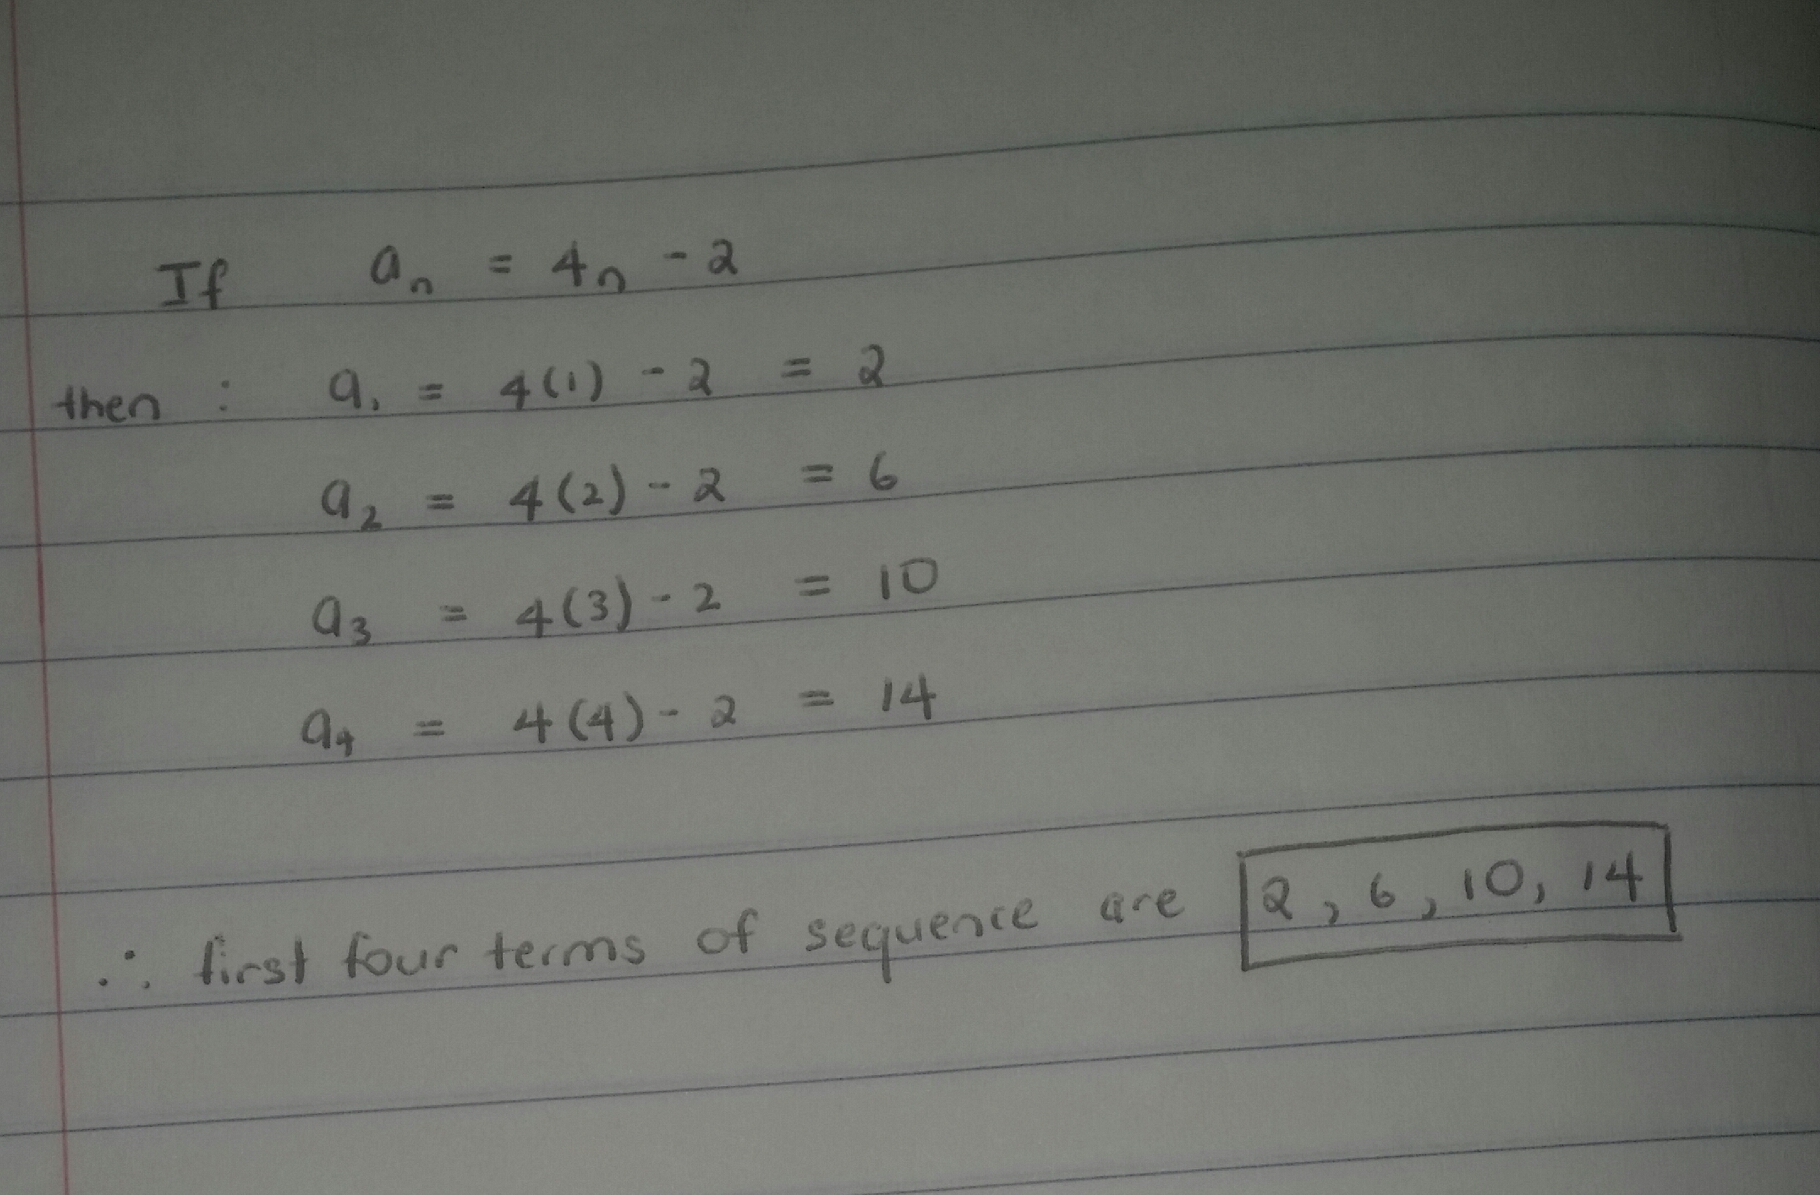 If aₙ = 4n - 2
then : a₁ = 4(1) - 2 = 2
a₂ = 4(2) - 2 = 6
a₃ = 4(3) - 2 = 10
a₄ = 4(4) - 2 = 14
∴ first four terms of sequence are 2, 6, 10, 14